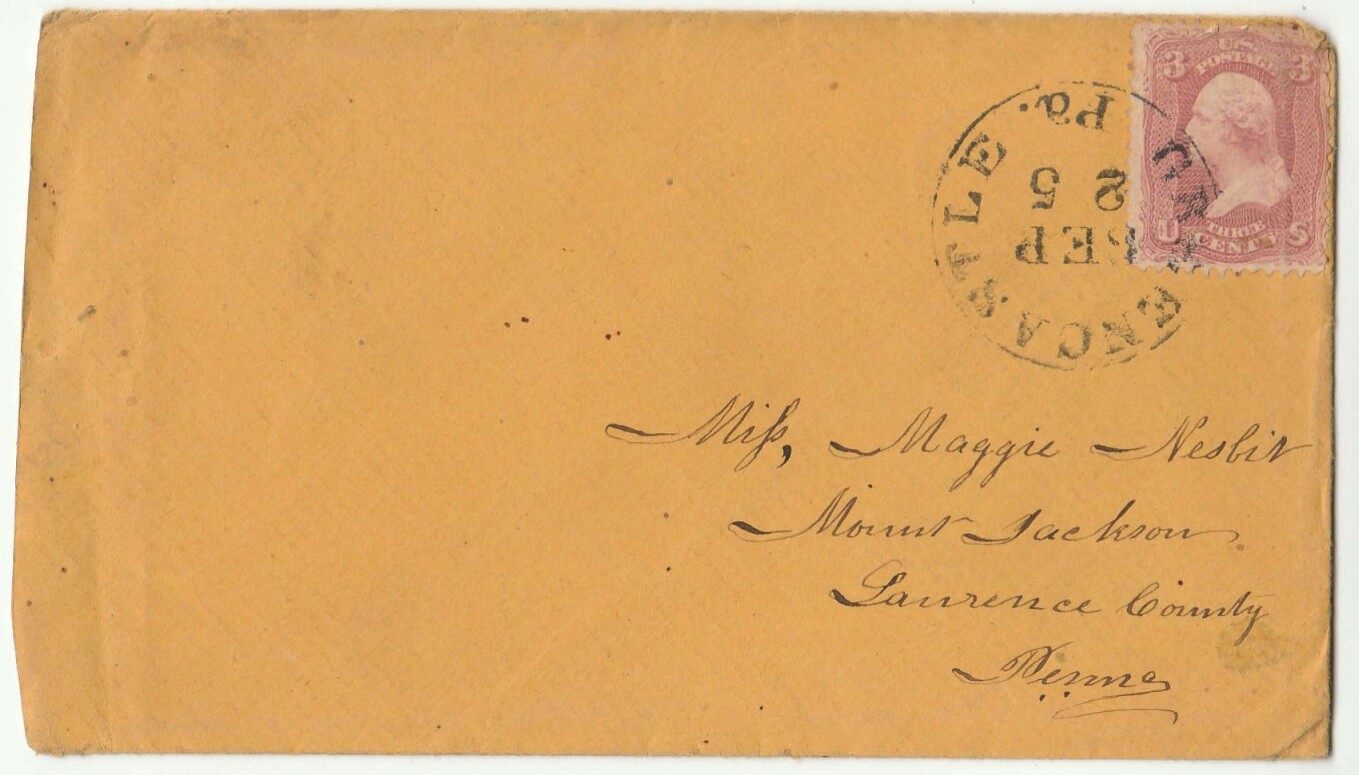 3 U.S. 3
POSTAGE
U THREE S
CENTS
GREENCASTLE Pa.
SEP
25
Miſs, Maggie Nesbit
Mount Jackson
Laurence County
Penna